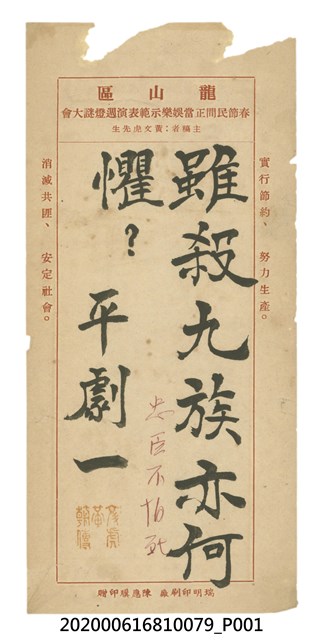 龍山區
春節民間正當娛樂示範表演週燈謎大會
主稿者：黃文虎先生
實行節約、努力生產。
雖殺九族亦何
懼？
平劇一
忠臣不怕死
消滅共匪、安定社會。
瑞明印刷廠 陳應印贈